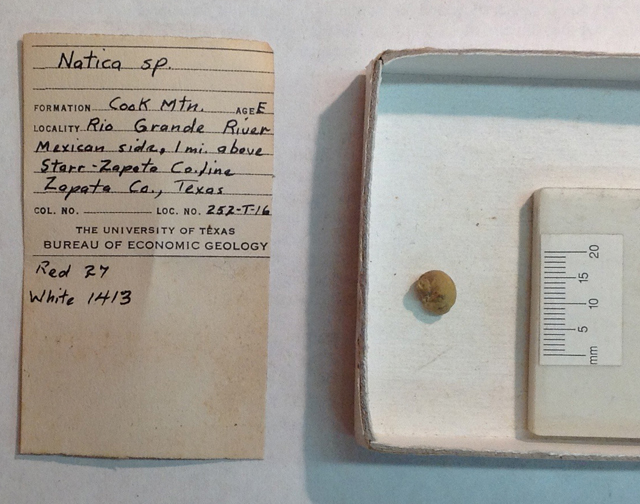 Natica sp.
FORMATION Cook Mtn. AGE E
LOCALITY Rio Grande River
Mexican side, 1 mi. above
Starr-Zapata Co. line
Zapata Co., Texas
COL. NO. LOC. NO. 252-T-16
THE UNIVERSITY OF TEXAS
BUREAU OF ECONOMIC GEOLOGY
Red 27
White 1413
20
15
10
5
mm